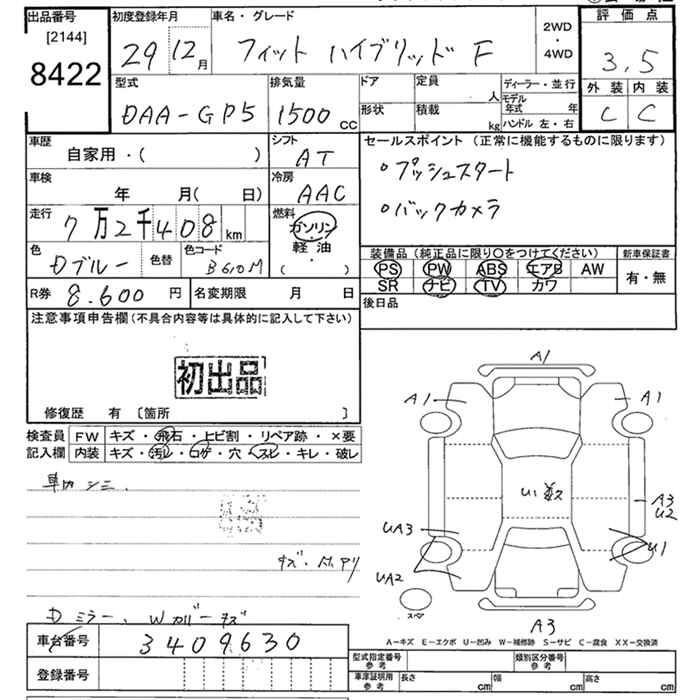 出品番号
[2144]
8422
初度登録年月
29 12月
車名・グレード
フィット ハイブリッド F
2WD
・
4WD
評価点
3.5
外装 内装
C C
型式
DAA-GP5
排気量
1500 cc
ドア
形状
定員
人
積載
kg
ディーラー・並行
モデル年式 年
ハンドル 左・右
車歴
自家用・( )
シフト
AT
セールスポイント (正常に機能するものに限ります)
○プッシュスタート
○バックカメラ
車検
年 月( 日)
冷房
AAC
走行
7万2千408km
燃料
ガソリン
軽油
( ・ )
色
Dブルー
色替
色コード
B610M
装備品 (純正品に限り○をつけてください)
PS PW ABS エアB AW
SR ナビ TV カワ
新車保証書
有・無
R券 8.600 円
名変期限 月 日
後日品
注意事項申告欄 (不具合内容等は具体的に記入して下さい)
初出品
修復歴 有 〔箇所 〕
検査員
記入欄
FW キズ・飛石・ヒビ割・リペア跡・×要
内装 キズ・汚レ・コゲ・穴・スレ・キレ・破レ
車内 シミ.
Dミラー、Wカバーキズ
車台番号 3409630
登録番号
A1
A1
A1
A3
U2
UA3
U1
UA2
A3
スペア
A-キズ E-エクボ U-凹み W-補修跡 S-サビ C-腐食 XX-交換済
型式指定番号
参考
類別区分番号
参考
車庫証明用
参考
長さ cm 幅 cm 高さ cm